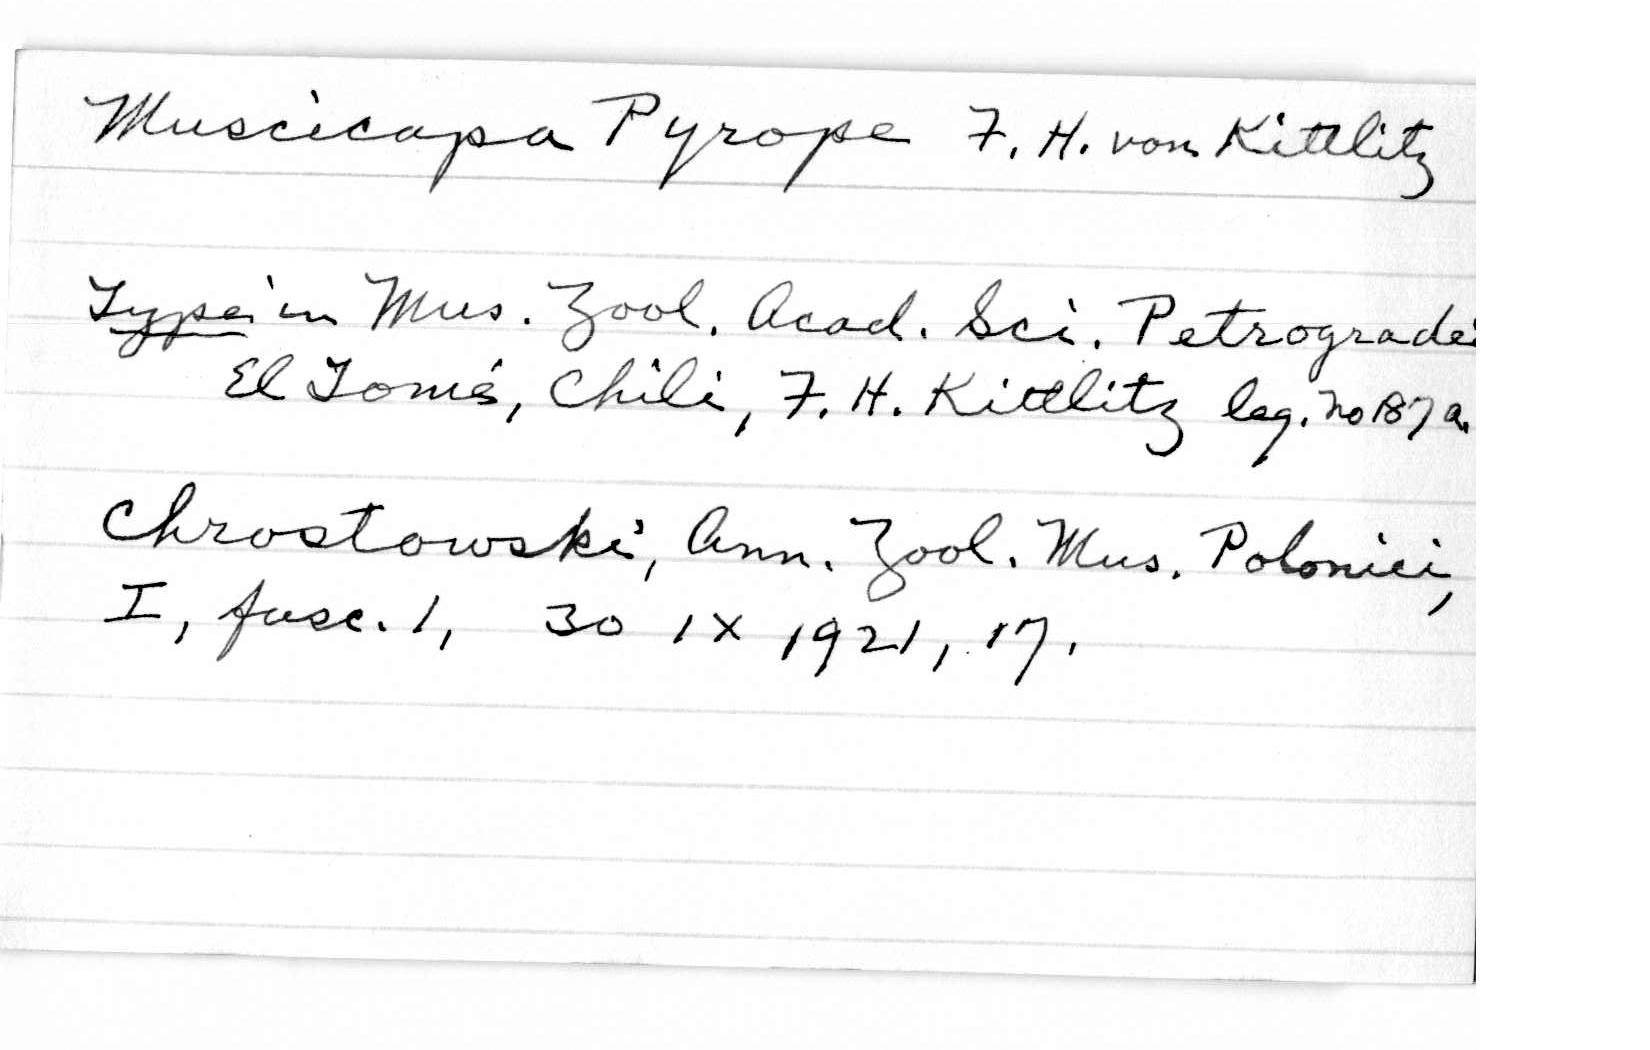 Muscicapa Pyrope F. H. von Kittlitz
Type in Mus. Zool. Acad. Sci. Petrograde:
El Tomé, Chili, F. H. Kittlitz leg. No 187a.
Chrostowski, Ann. Zool. Mus. Polonici,
I, fasc. 1, 30 IX 1921, 17.